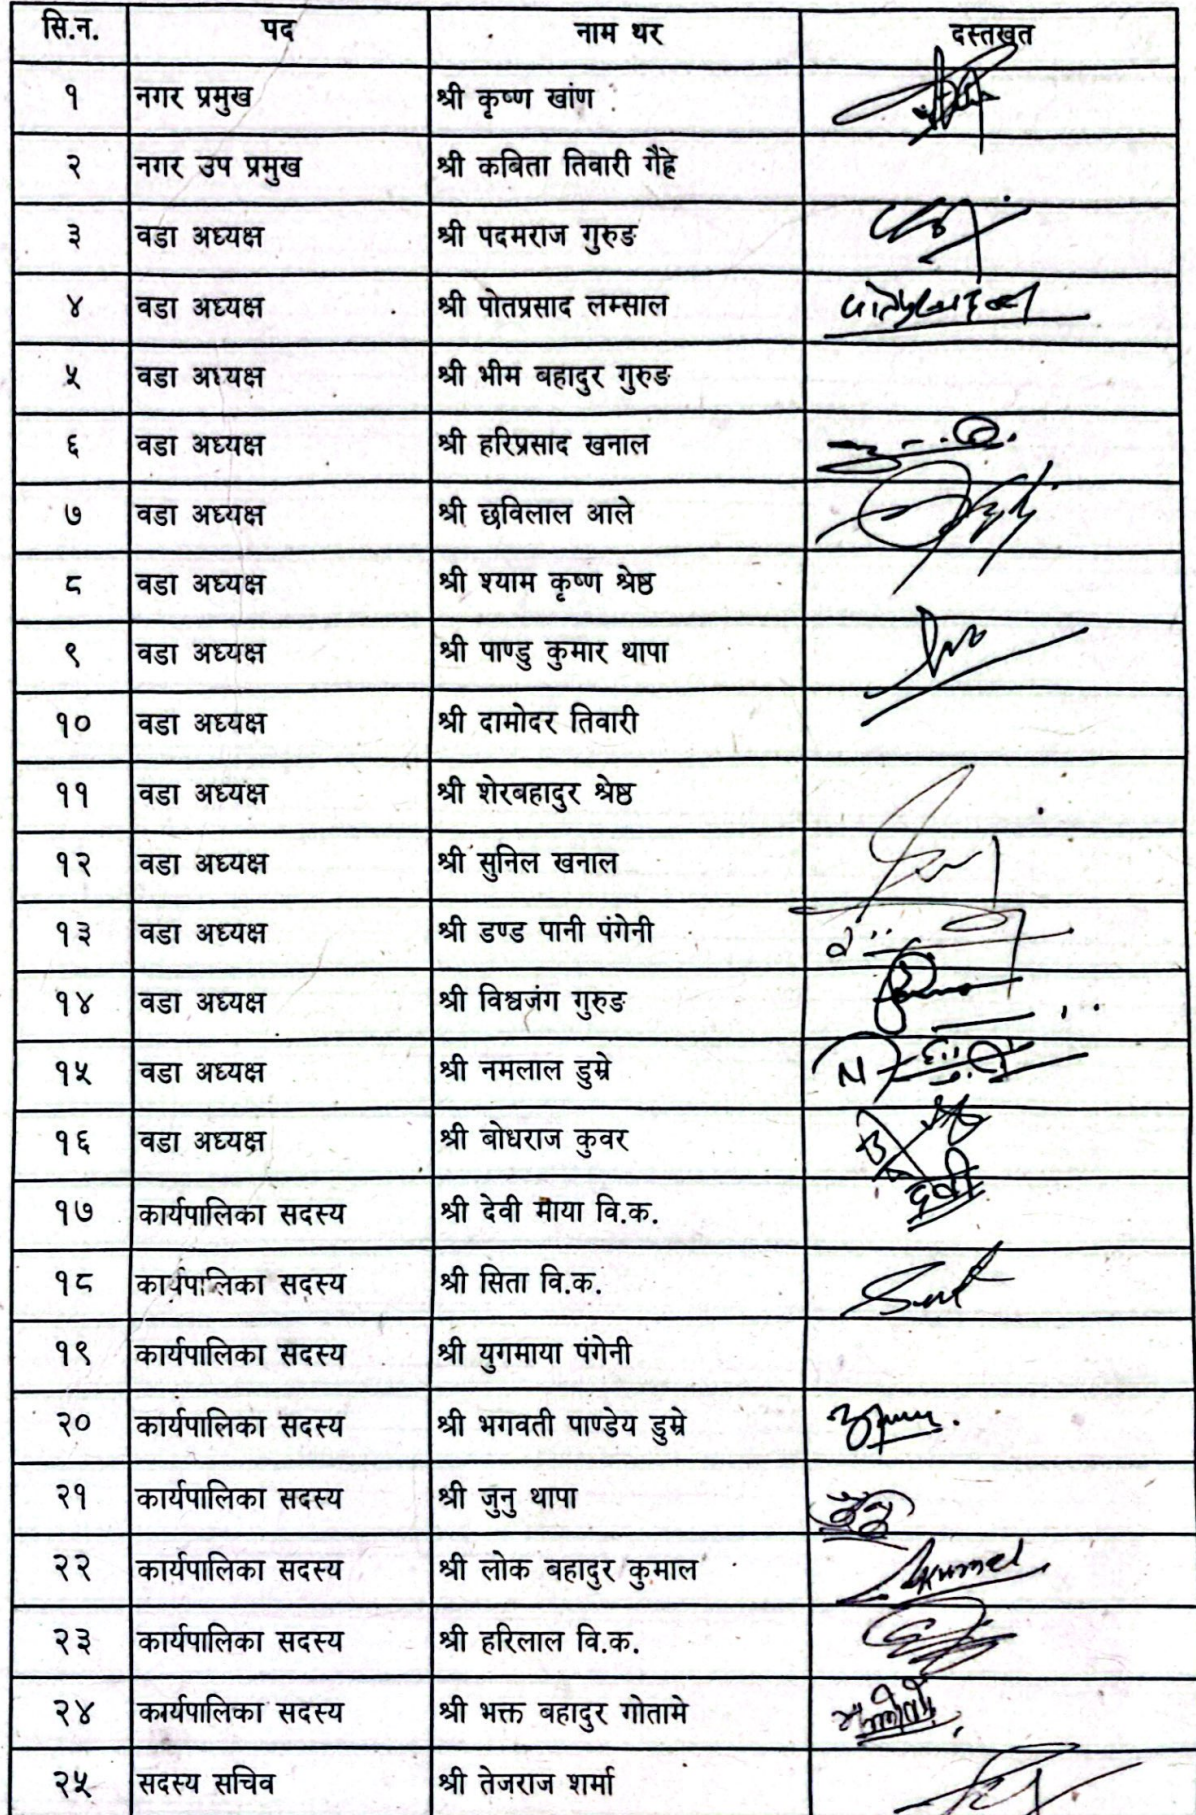 सि.न. पद नाम थर दस्तखुत
१ नगर प्रमुख श्री कृष्ण खांण
२ नगर उप प्रमुख श्री कबिता तिवारी गैह्रे
३ वडा अध्यक्ष श्री पदमराज गुरुङ
४ वडा अध्यक्ष श्री पोतप्रसाद लम्साल
५ वडा अध्यक्ष श्री भीम बहादुर गुरुङ
६ वडा अध्यक्ष श्री हरिप्रसाद खनाल
७ वडा अध्यक्ष श्री छविलाल आले
८ वडा अध्यक्ष श्री श्याम कृष्ण श्रेष्ठ
९ वडा अध्यक्ष श्री पाण्डु कुमार थापा
१० वडा अध्यक्ष श्री दामोदर तिवारी
११ वडा अध्यक्ष श्री शेरबहादुर श्रेष्ठ
१२ वडा अध्यक्ष श्री सुनिल खनाल
१३ वडा अध्यक्ष श्री डण्ड पानी पंगेनी
१४ वडा अध्यक्ष श्री विश्वजंग गुरुङ
१५ वडा अध्यक्ष श्री नमलाल डुम्रे
१६ वडा अध्यक्ष श्री बोधराज कुवर
१७ कार्यपालिका सदस्य श्री देवी माया वि.क. देवी
१८ कार्यपालिका सदस्य श्री सिता वि.क.
१९ कार्यपालिका सदस्य श्री युगमाया पंगेनी
२० कार्यपालिका सदस्य श्री भगवती पाण्डेय डुम्रे
२१ कार्यपालिका सदस्य श्री जुनु थापा
२२ कार्यपालिका सदस्य श्री लोक बहादुर कुमाल
२३ कार्यपालिका सदस्य श्री हरिलाल वि.क.
२४ कार्यपालिका सदस्य श्री भक्त बहादुर गोतामे
२५ सदस्य सचिव श्री तेजराज शर्मा